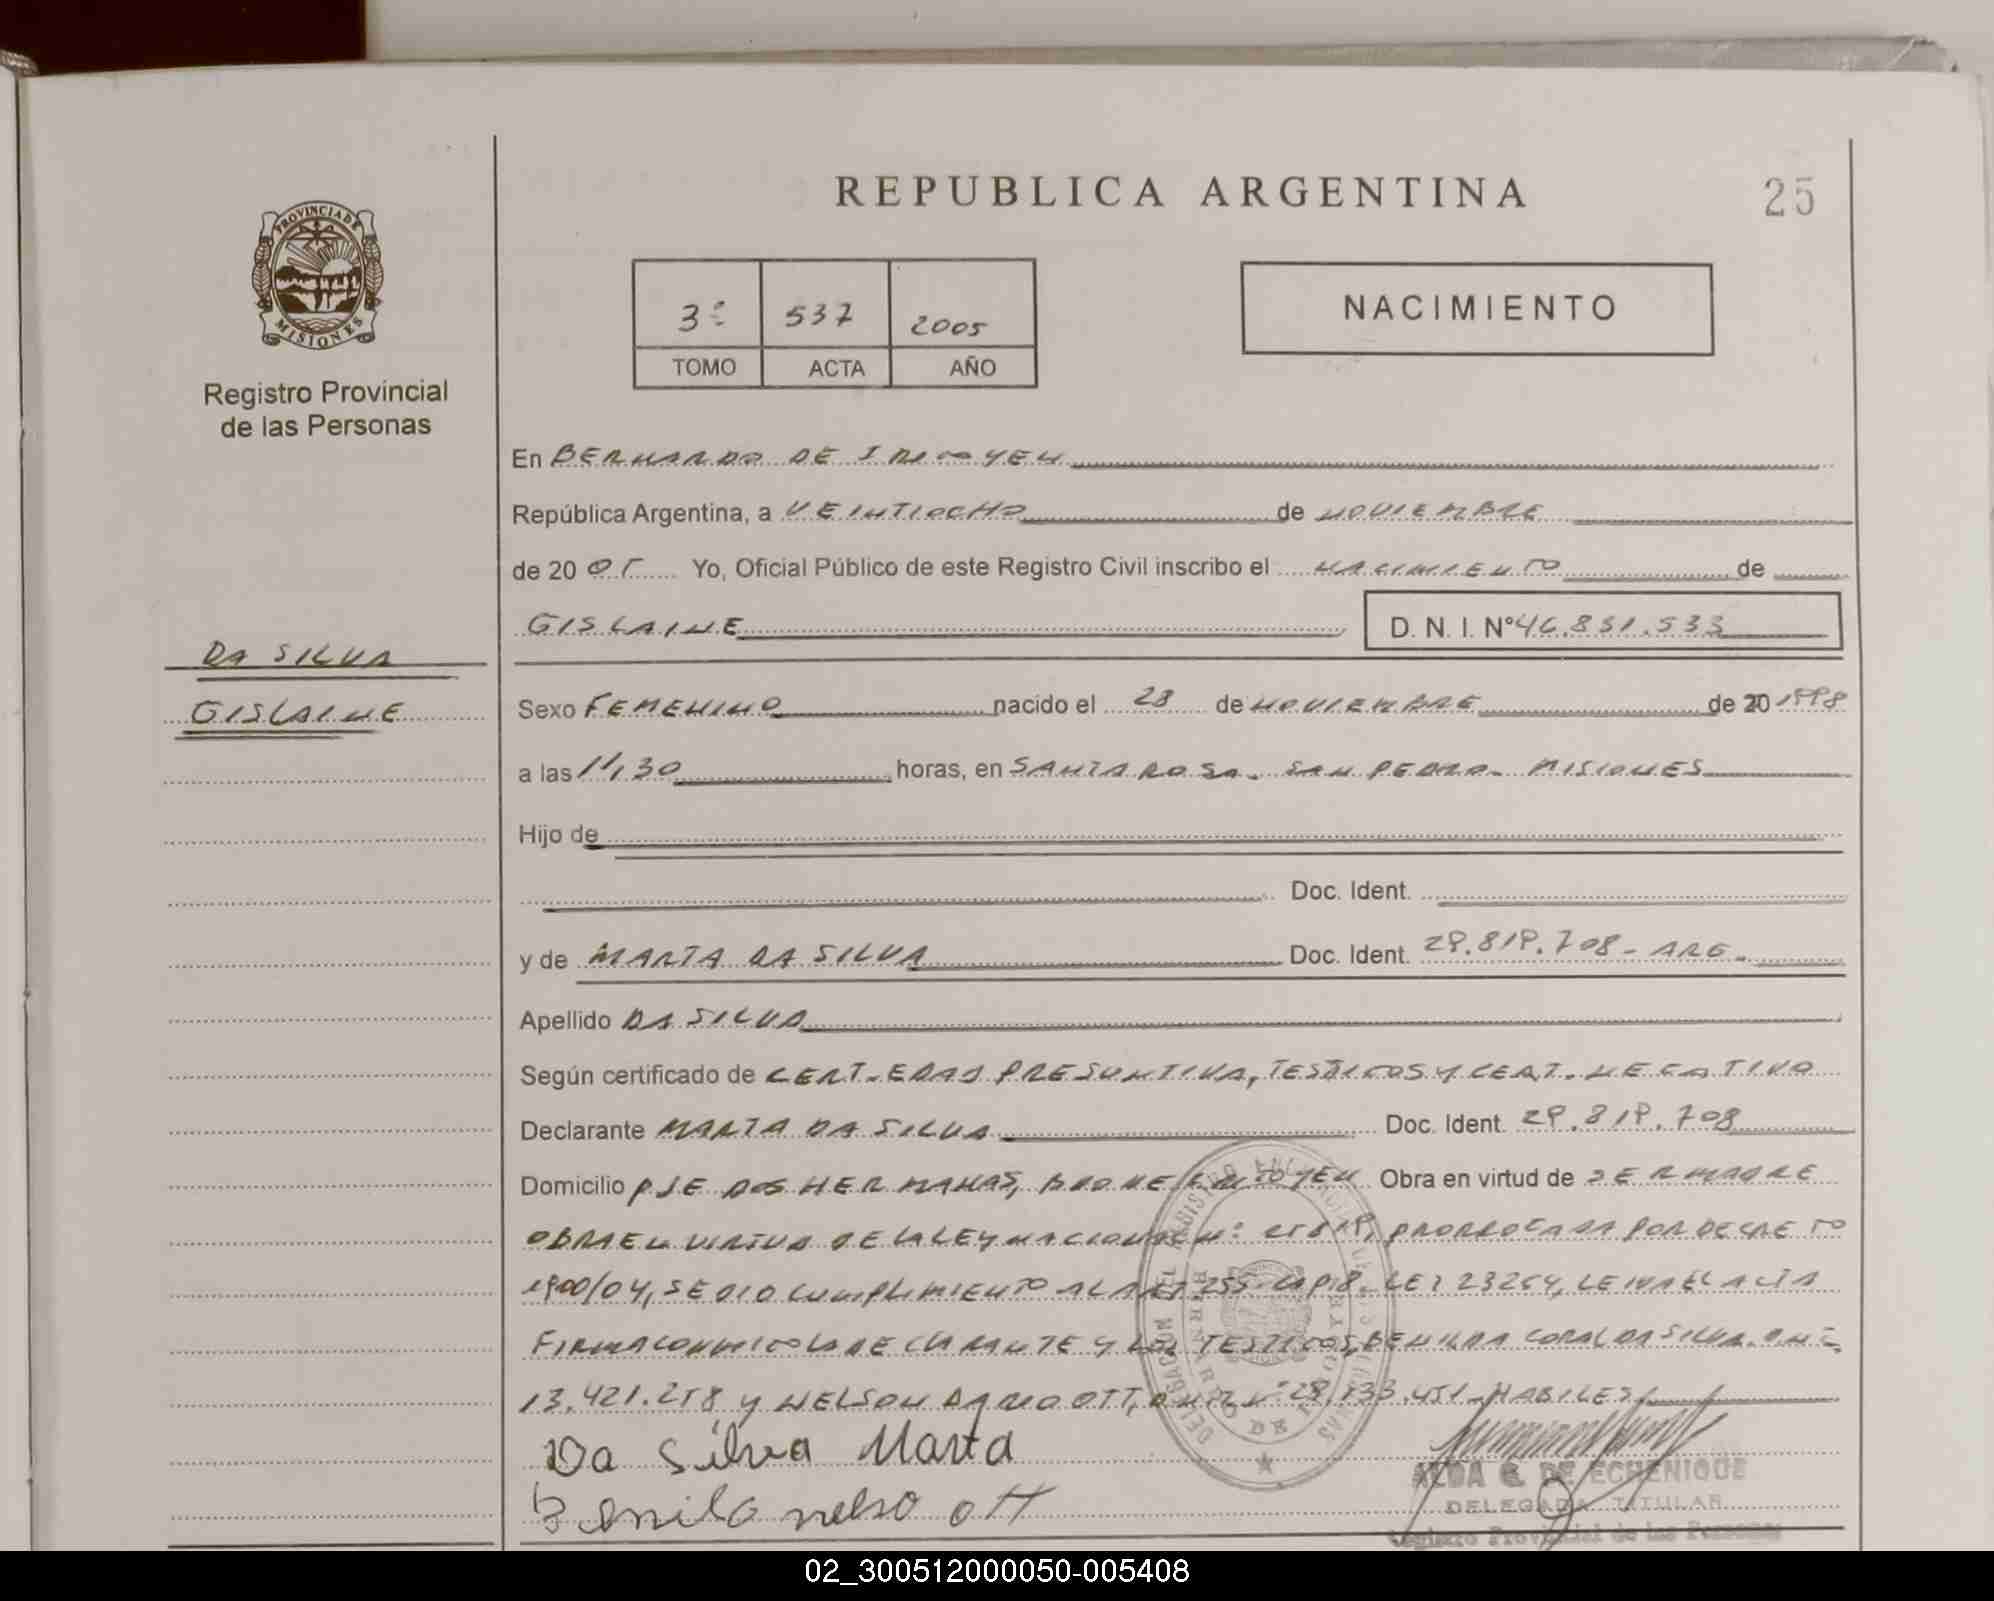 REPUBLICA ARGENTINA
25
PROVINCIA DE
MISIONES
Registro Provincial
de las Personas
3º 537 2005
TOMO ACTA AÑO
NACIMIENTO
En BERNARDO DE IRIGOYEN
República Argentina, a VEINTIOCHO de NOVIEMBRE
de 20 05 Yo, Oficial Público de este Registro Civil inscribo el NACIMIENTO de
GISLAINE D. N. I. Nº 46.831.533
DA SILVA
GISLAINE
Sexo FEMENINO nacido el 28 de NOVIEMBRE de 20 1998
a las 11,30 horas, en SANTA ROSA - SAN PEDRO - MISIONES
Hijo de
Doc. Ident.
y de MARTA DA SILVA Doc. Ident. 29.819.708 - ARG -
Apellido DA SILVA
Según certificado de CERT. EDAD PRESUNTIVA, TESTIGOS Y CERT. NEGATIVO
Declarante MARTA DA SILVA Doc. Ident. 29.819.708
Domicilio PJE DOS HERMANAS, BDO DE IRIGOYEN Obra en virtud de SER MADRE
OBRA EN VIRTUD DE LA LEY NACIONAL Nº 25819, PRORROGADA POR DECRETO
1900/04, SE DIO CUMPLIMIENTO AL ART 255 CAP 8 LEY 23264, LEIDA EL ACTA
FIRMA CONMIGO LA DECLARANTE Y LOS TESTIGOS, BENILDA CORAL DA SILVA D.N.I.
13.421.258 y NELSON DARIO OTT, D.N.I. Nº 28.133.451 - HABILES
Da Silva Marta
Benilda nelso ott
ALDA G. DE ECHENIQUE
DELEGADA TITULAR
Registro Provincial de las Personas
02_300512000050-005408